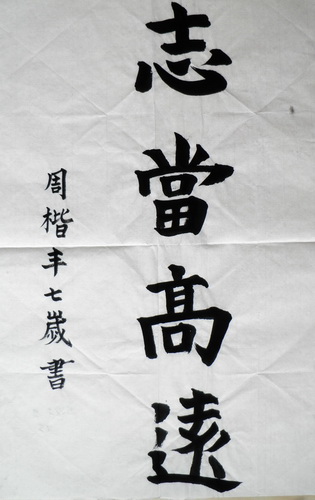 志當高遠
周楷丰七歲書